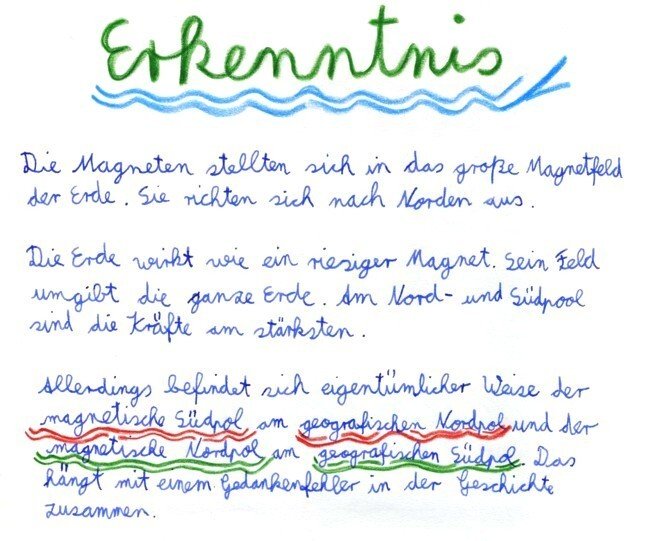 Erkenntnis
Die Magneten stellten sich in das große Magnetfeld
der Erde. Sie richten sich nach Norden aus.
Die Erde wirkt wie ein riesiger Magnet. Sein Feld
umgibt die ganze Erde. Am Nord- und Südpool
sind die Kräfte am stärksten.
Allerdings befindet sich eigentümlicher Weise der
magnetische Südpol am geografischen Nordpol und der
magnetische Nordpol am geografischen Südpol. Das
hängt mit einem Gedankenfehler in der Geschichte
zusammen.